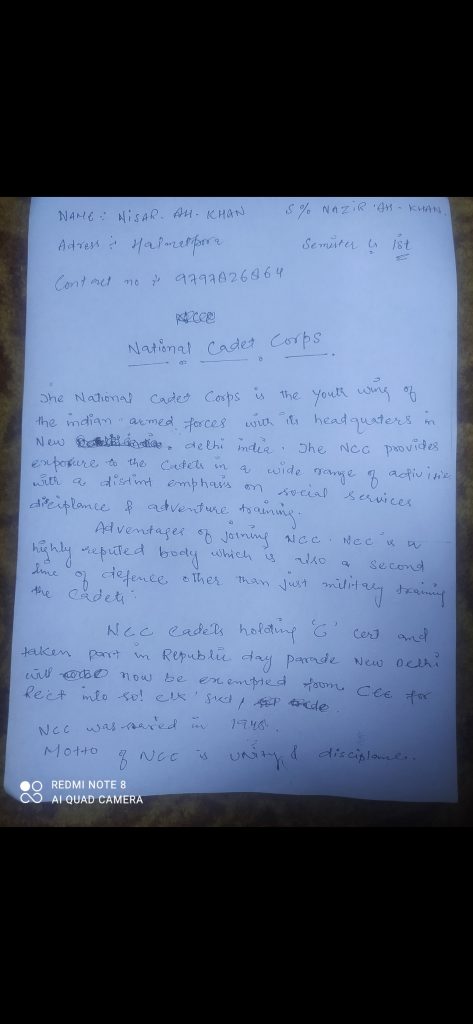 NAME : NISAR. AH. KHAN S/o NAZIR AH - KHAN
Adress : Halmatpora Semister is 1st
Contact no : 9797826864
National Cadet Corps
The National Cadet Corps is the youth wing of
the indian armed forces with its headquaters in
New delhi india. The NCC provides
exposure to the Cadets in a wide range of
with a distint emphasis on social services
diciplance & adventure training.
Adventages of joining NCC. NCC is a
highly reputed body which is also a second
line of defence other than just military training
the Cadets.
NCC Cadets holding 'C' cert and
taken part in Republic day parade New Delhi
will now be exempted from CEE for
Rect into so!
NCC was in 1948.
Motto of NCC is unity & disciplane.
REDMI NOTE 8
AI QUAD CAMERA